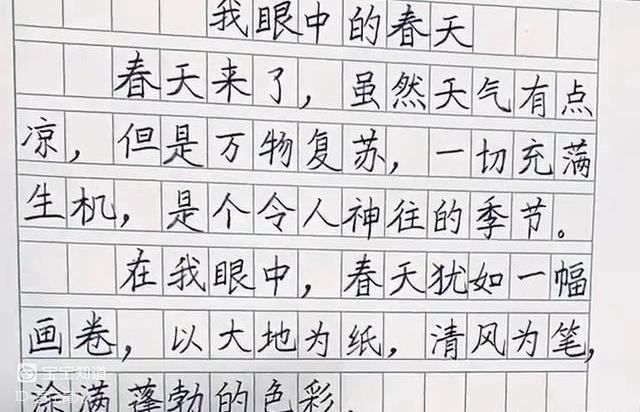 我眼中的春天
春天来了，虽然天气有点
凉，但是万物复苏，一切充满
生机，是个令人神往的季节。
在我眼中，春天犹如一幅
画卷，以大地为纸，清风为笔，
涂满蓬勃的色彩，
宝宝知道